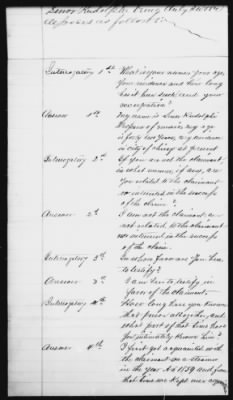 Senor Rudolphi being duly sworn
deposes as follows:
Interrogatory 1st What is your name, your age,
Your residence and how long
have been such, and your
occupation?
Answer 1st My name is Senor Rudolphi
Professor of music, my age
is forty two years, my residence
is city of at present
Interrogatory 2d If you are not the claimant,
in what manner, if any, are
you related to the claimant
or interested in the success
of the claim?
Answer 2d I am not the claimant, or
not related, to the claimant
not interested in the success
of the claim.
Interrogatory 3d In whose favor are you here
to testify?
Answer 3d I am here to testify in
favor of the claimant.
Interrogatory 4th How long have you known
that prior altogether, and
what part of that time have
you intimately known him?
Answer 4th I first got acquainted with
the claimant on a steamer
in the year A.D. 1859 and from
that time we kept over